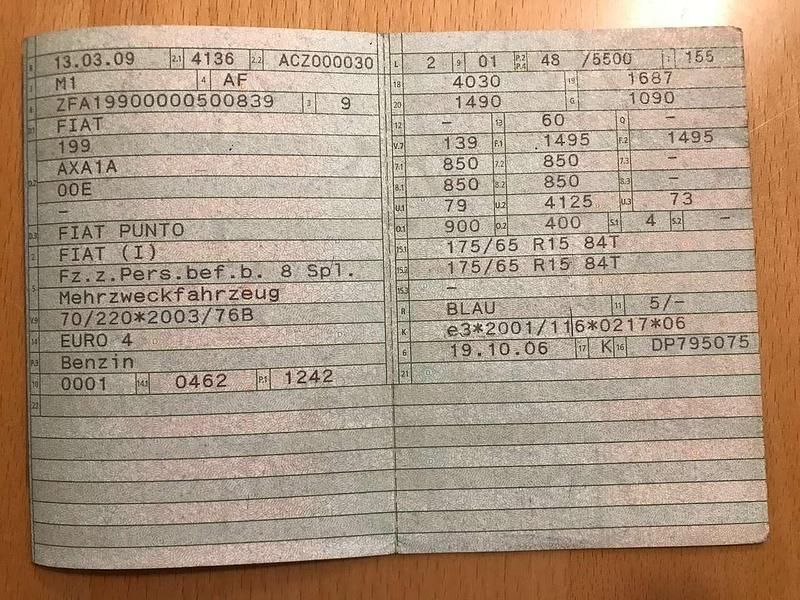 B 13.03.09 2.1 4136 2.2 ACZ000030
J M1 4 AF
E ZFA19900000500839 3 9
D.1 FIAT
199
D.2 AXA1A
00E
–
D.3 FIAT PUNTO
2 FIAT (I)
5 Fz.z.Pers.bef.b. 8 Spl.
Mehrzweckfahrzeug
V.9 70/220*2003/76B
14 EURO 4
P.3 Benzin
10 0001 14.1 0462 P.1 1242
22
L 2 9 01 P.2 P.4 48 /5500 T 155
18 4030 19 1687
20 1490 G 1090
12 – 13 60 Q –
V.7 139 F.1 1495 F.2 1495
7.1 850 7.2 850 7.3 –
8.1 850 8.2 850 8.3 –
U.1 79 U.2 4125 U.3 73
O.1 900 O.2 400 S.1 4 S.2 –
15.1 175/65 R15 84T
15.2 175/65 R15 84T
15.3 –
R BLAU 11 5/–
K e3*2001/116*0217*06
6 19.10.06 17 K 16 DP795075
21